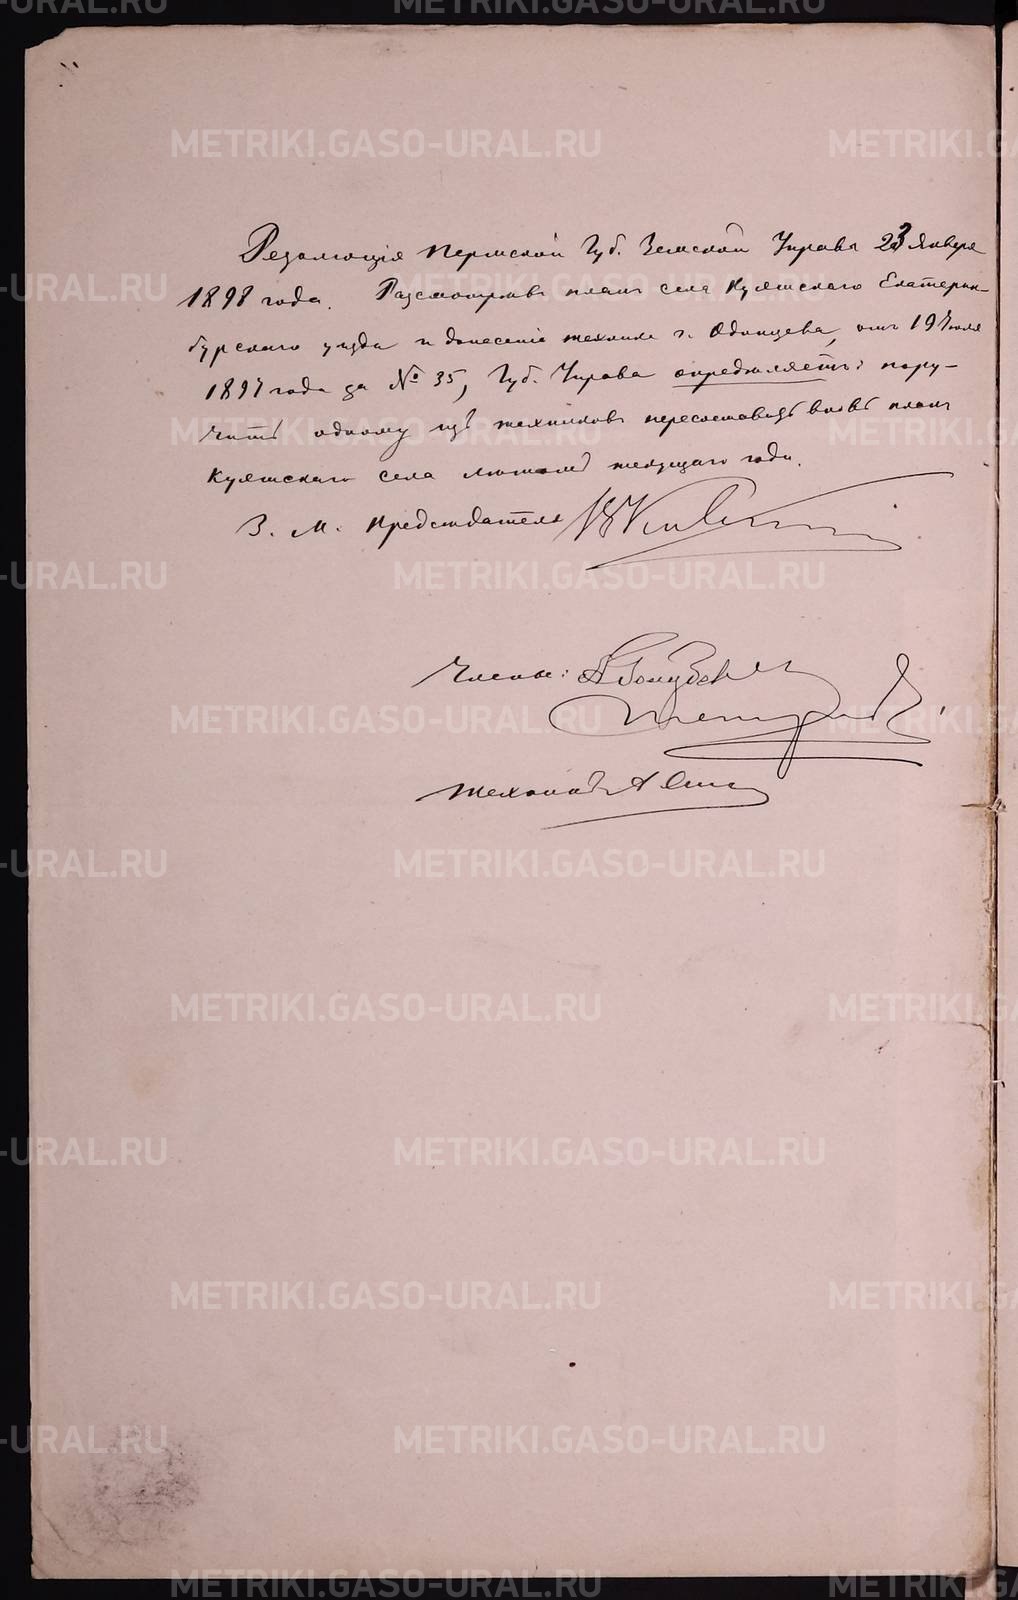 Резолюція Пермской Губ. Земской Управы 23 Января
1898 года. Разсмотрѣвъ планъ села Куяшскаго Екатерин-
бурскаго уѣзда и донесеніе техника г. Одинцева, отъ 19 Іюля
1897 года за № 35, Губ. Управа опредѣляетъ: пору-
чить одному изъ техниковъ пересоставить вновь планъ
Куяшскаго села лѣтомъ текущаго года.
З. М. Предсѣдателя
Члены: А Голубев
Техникъ А
METRIKI.GASO-URAL.RU